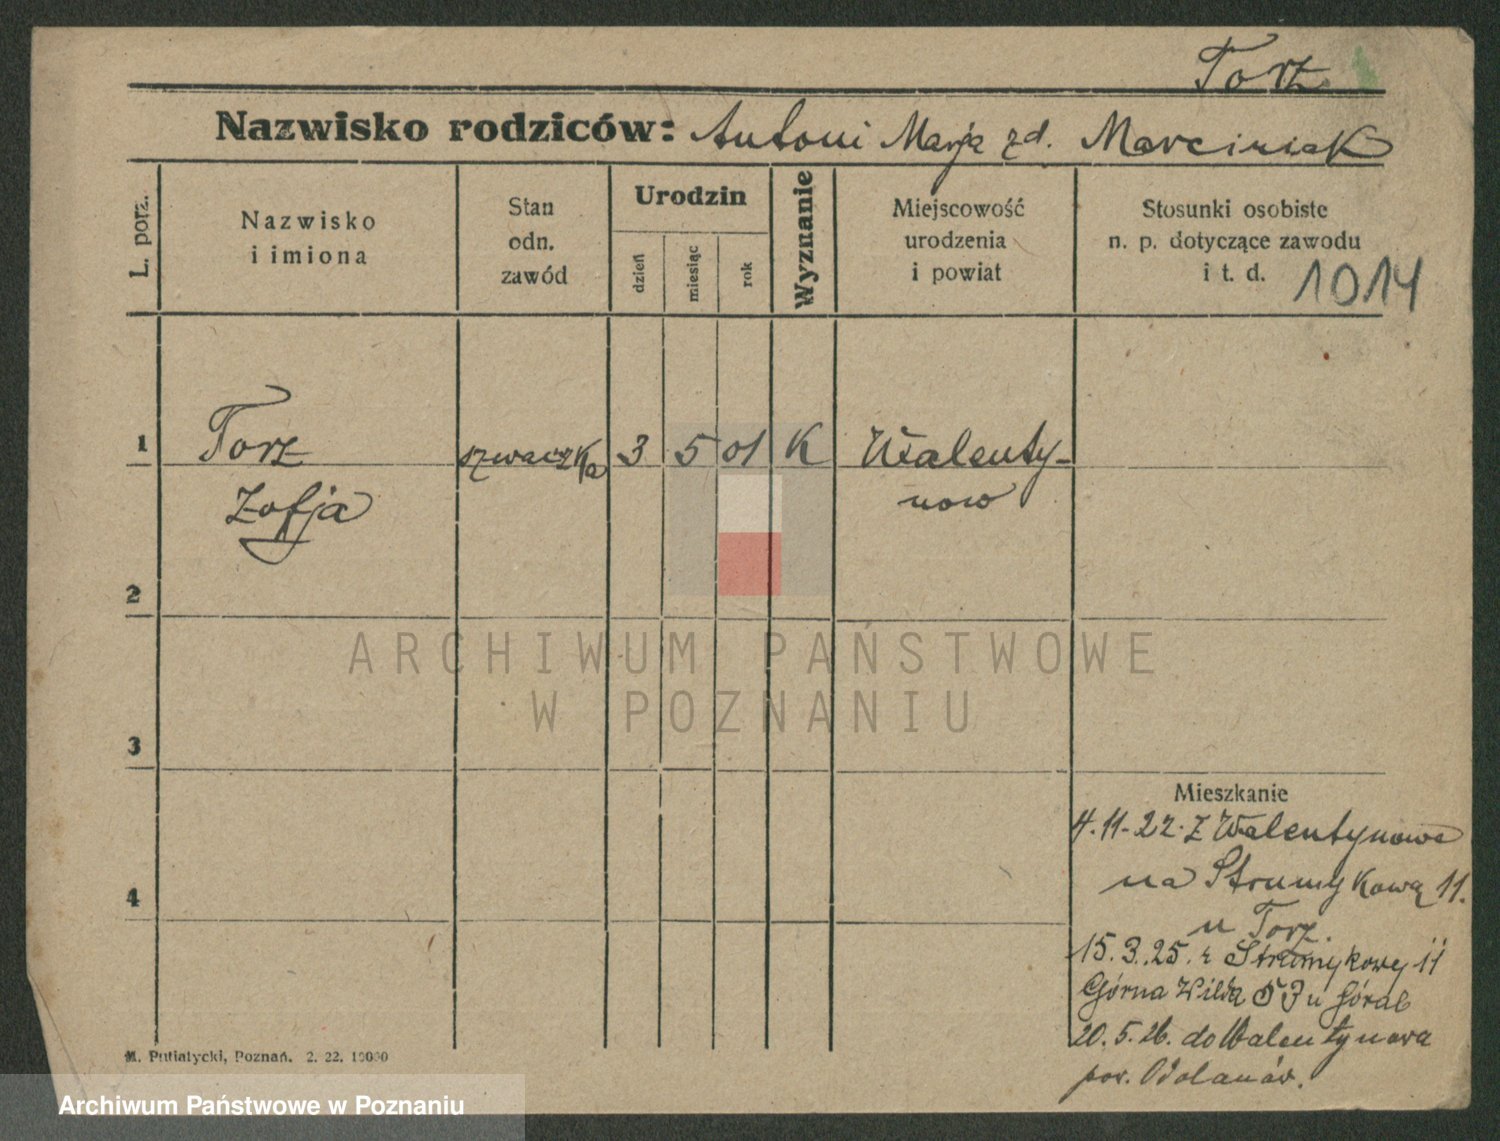 Torz
Nazwisko rodziców: Antoni Marja zd. Marciniak
L. porz.
Nazwisko
i imiona
Stan
odn.
zawód
Urodzin
dzień
miesiąc
rok
Wyznanie
Miejscowość
urodzenia
i powiat
Stosunki osobiste
n. p. dotyczące zawodu
i t. d.
1014
1
Torz
szwaczka
3
5
01
K
Walenty-
now
Zofja
2
ARCHIWUM PAŃSTWOWE
W POZNANIU
3
Mieszkanie
4.11.22. z Walentynowa
na Strumykową 11.
u Torz.
4
15.3.25. z Strumykowej 11
Górna Wilda 53 u Góral
20.5.26. do Walentynowa
pow. Odolanów.
M. Putiatycki, Poznań. 2. 22. 10000
Archiwum Państwowe w Poznaniu